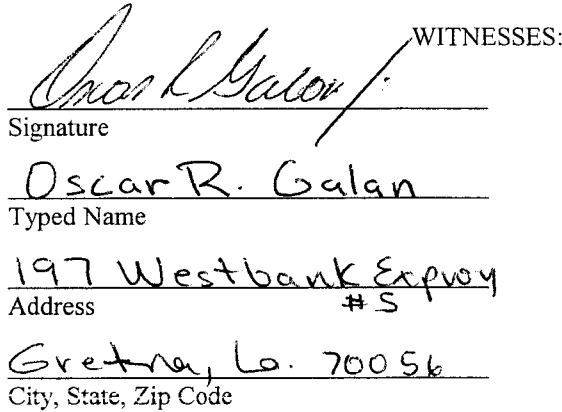 WITNESSES:
Oscar R Galan
Signature
Oscar R. Galan
Typed Name
197 Westbank Expwy
#5
Address
Gretna, La. 70056
City, State, Zip Code